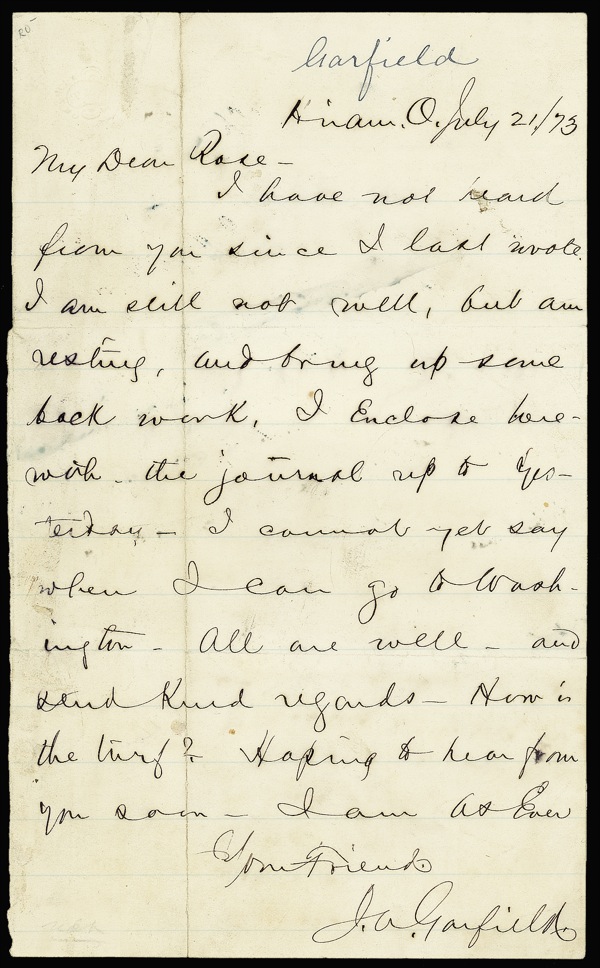 Garfield
Hiram. O. July 21/73
My Dear Rose -
I have not heard
from you since I last wrote.
I am still not well, but am
resting, and bring up some
back work. I Enclose here-
with the journal up to Yes-
terday - I cannot yet say
when I can go to Wash-
ington - All are well - and
send Kind regards - How is
the turf? Hoping to hear from
you soon - I am As Ever
Your Friend
J. A. Garfield